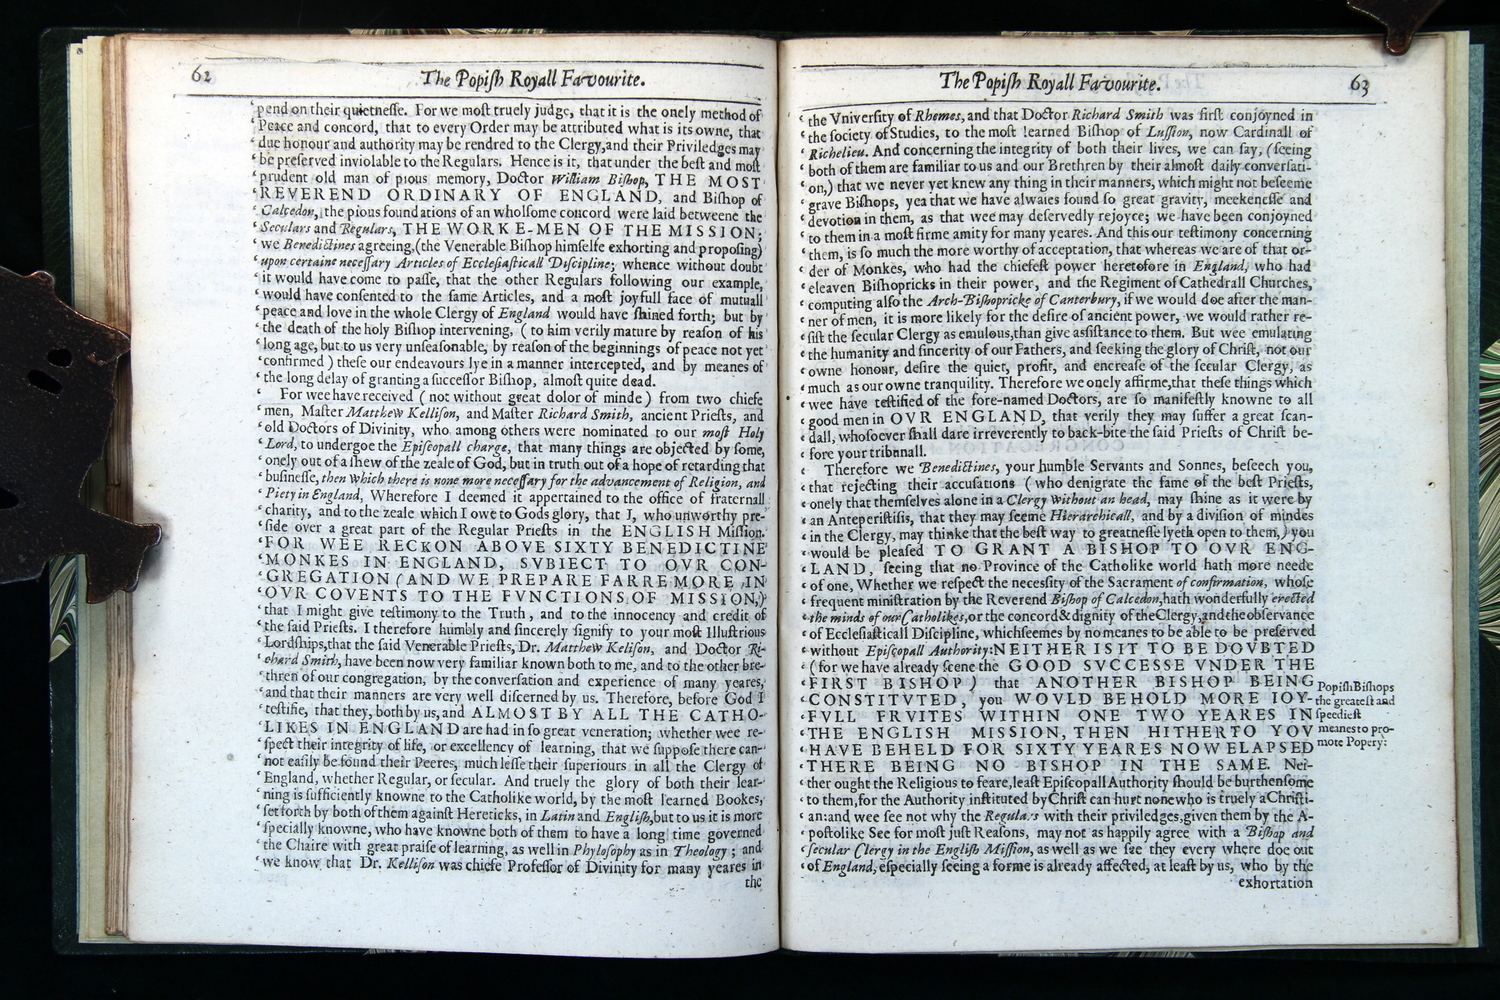 62
The Popish Royall Favourite.
‘pend on their quietnesse. For we most truely judge, that it is the onely method of
‘Peace and concord, that to every Order may be attributed what is its owne, that
‘due honour and authority may be rendred to the Clergy,and their Priviledges may
‘be preserved inviolable to the Regulars. Hence is it, that under the best and most
‘prudent old man of pious memory, Doctor William Bishop, THE MOST
‘REVEREND ORDINARY OF ENGLAND, and Bishop of
‘Calcedon, the pious foundations of an wholsome concord were laid betweene the
‘Seculars and Regulars, THE WORKE-MEN OF THE MISSION;
‘we Benedictines agreeing,(the Venerable Bishop himselfe exhorting and proposing)
‘upon certaine necessary Articles of Ecclesiasticall Discipline; whence without doubt
‘it would have come to passe, that the other Regulars following our example,
‘would have consented to the same Articles, and a most joyfull face of mutuall
‘peace and love in the whole Clergy of England would have shined forth; but by
‘the death of the holy Bishop intervening, ( to him verily mature by reason of his
‘long age, but to us very unseasonable, by reason of the beginnings of peace not yet
‘confirmed ) these our endeavours lye in a manner intercepted, and by meanes of
‘the long delay of granting a successor Bishop, almost quite dead.
‘ For wee have received ( not without great dolor of minde ) from two chiefe
‘men, Master Matthew Kellison, and Master Richard Smith, ancient Priests, and
‘old Doctors of Divinity, who among others were nominated to our most Holy
‘Lord, to undergoe the Episcopall charge, that many things are objected by some,
‘onely out of a shew of the zeale of God, but in truth out of a hope of retarding that
‘businesse, then which there is none more necessary for the advancement of Religion, and
‘Piety in England, Wherefore I deemed it appertained to the office of fraternall
‘charity, and to the zeale which I owe to Gods glory, that I, who unworthy pre-
‘side over a great part of the Regular Priests in the ENGLISH Mission.
‘FOR WEE RECKON ABOVE SIXTY BENEDICTINE
‘MONKES IN ENGLAND, SVBIECT TO OVR CON-
‘GREGATION (AND WE PREPARE FARRE MORE IN
‘OVR COVENTS TO THE FVNCTIONS OF MISSION,)
‘that I might give testimony to the Truth, and to the innocency and credit of
‘the said Priests. I therefore humbly and sincerely signify to your most Illustrious
‘Lordships,that the said Venerable Priests, Dr. Matthew Kelison, and Doctor Ri-
‘chard Smith, have been now very familiar known both to me, and to the other bre-
‘thren of our congregation, by the conversation and experience of many yeares,
‘and that their manners are very well discerned by us. Therefore, before God I
‘testifie, that they, both by us, and ALMOST BY ALL THE CATHO-
‘LIKES IN ENGLAND are had in so great veneration; whether wee re-
‘spect their integrity of life, or excellency of learning, that we suppose there can-
‘not easily be found their Peeres, much lesse their superiours in all the Clergy of
‘England, whether Regular, or secular. And truely the glory of both their lear-
‘ning is sufficiently knowne to the Catholike world, by the most learned Bookes,
‘set forth by both of them against Hereticks, in Latin and English,but to us it is more
‘specially knowne, who have knowne both of them to have a long time governed
‘the Chaire with great praise of learning, as well in Phylosophy as in Theology; and
‘we know that Dr. Kellison was chiefe Professor of Divinity for many yeares in
the
The Popish Royall Favourite.
63
‘the Vniversity of Rhemes, and that Doctor Richard Smith was first conjoyned in
‘the society of Studies, to the most learned Bishop of Lussion, now Cardinall of
‘Richelieu. And concerning the integrity of both their lives, we can say, (seeing
‘both of them are familiar to us and our Brethren by their almost daily conversati-
‘on,) that we never yet knew any thing in their manners, which might not beseeme
‘grave Bishops, yea that we have alwaies found so great gravity, meekenesse and
‘devotion in them, as that wee may deservedly rejoyce; we have been conjoyned
‘to them in a most firme amity for many yeares. And this our testimony concerning
‘them, is so much the more worthy of acceptation, that whereas we are of that or-
‘der of Monkes, who had the chiefest power heretofore in England, who had
‘eleaven Bishopricks in their power, and the Regiment of Cathedrall Churches,
‘computing also the Arch-Bishopricke of Canterbury, if we would doe after the man-
‘ner of men, it is more likely for the desire of ancient power, we would rather re-
‘sist the secular Clergy as emulous,than give assistance to them. But wee emulating
‘the humanity and sincerity of our Fathers, and seeking the glory of Christ, not our
‘owne honour, desire the quiet, profit, and encrease of the secular Clergy, as
‘much as our owne tranquility. Therefore we onely affirme,that these things which
‘wee have testified of the fore-named Doctors, are so manifestly knowne to all
‘good men in OVR ENGLAND, that verily they may suffer a great scan-
‘dall, whosoever shall dare irreverently to back-bite the said Priests of Christ be-
‘fore your tribunall.
Therefore we Benedictines, your humble Servants and Sonnes, beseech you,
‘that rejecting their accusations ( who denigrate the fame of the best Priests,
‘onely that themselves alone in a Clergy without an head, may shine as it were by
‘an Anteperistisis, that they may seeme Hierarchicall, and by a division of mindes
‘in the Clergy, may thinke that the best way to greatnesse lyeth open to them,) you
‘would be pleased TO GRANT A BISHOP TO OVR ENG-
‘LAND, seeing that no Province of the Catholike world hath more neede
‘of one, Whether we respect the necessity of the Sacrament of confirmation, whose
‘frequent ministration by the Reverend Bishop of Calcedon,hath wonderfully erected
‘the minds of our Catholikes,or the concord&dignity of theClergy,andtheobservance
‘of Ecclesiasticall Discipline, whichseemes by no meanes to be able to be preserved
‘without Episcopall Authority:NEITHER IS IT TO BE DOVBTED
‘( for we have already seene the GOOD SVCCESSE VNDER THE
‘FIRST BISHOP) that ANOTHER BISHOP BEING
‘CONSTITVTED, you WOVLD BEHOLD MORE IOY-
‘FVLL FRVITES WITHIN ONE TWO YEARES IN
‘THE ENGLISH MISSION, THEN HITHERTO YOV
‘HAVE BEHELD FOR SIXTY YEARES NOW ELAPSED
‘THERE BEING NO BISHOP IN THE SAME. Nei-
‘ther ought the Religious to feare,least Episcopall Authority should be burthensome
‘to them,for the Authority instituted by Christ can hurt none who is truely a Christi-
‘an:and wee see not why the Regulars with their priviledges,given them by the A-
‘postolike See for most just Reasons, may not as happily agree with a Bishop and
‘secular Clergy in the English Mission, as well as we see they every where doe out
‘of England, especially seeing a forme is already affected, at least by us, who by the
exhortation
Popish Bishops
the greatest and
speediest
meanes to pro-
mote Popery: